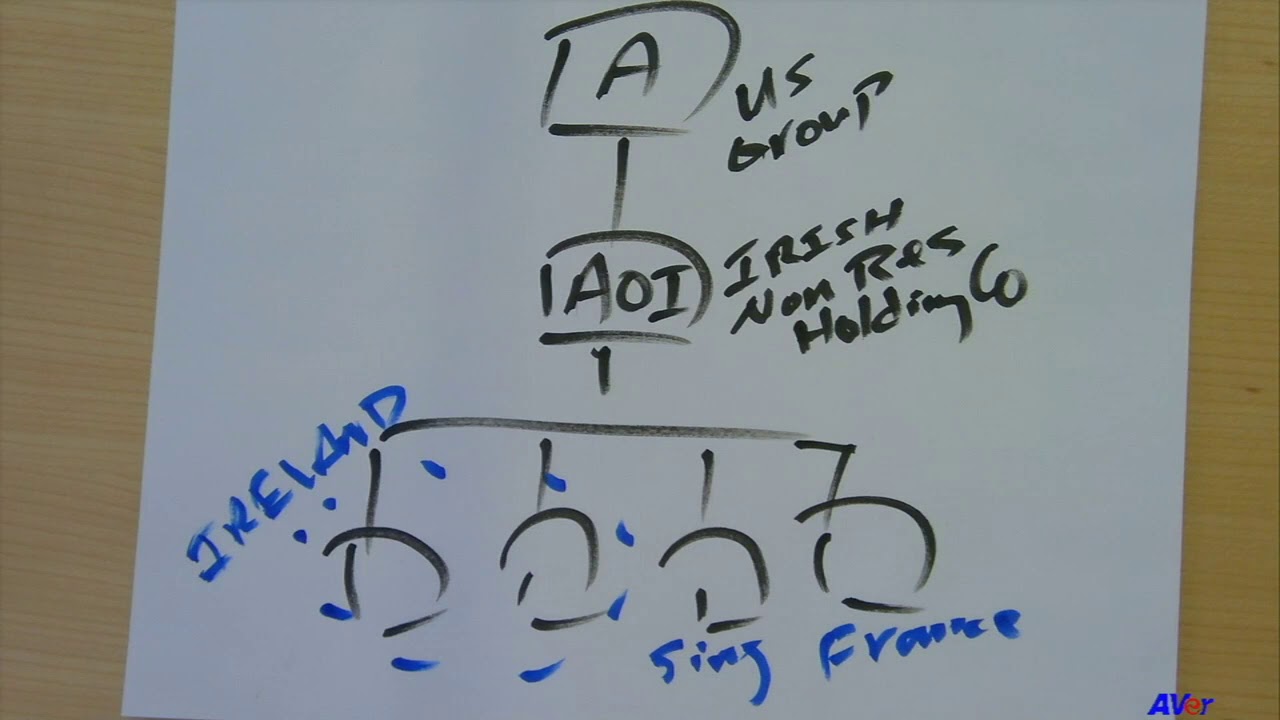 A
US
Group
AOI
IRISH
Non Res
Holding Co
IRELAND
Sing
France
AVer